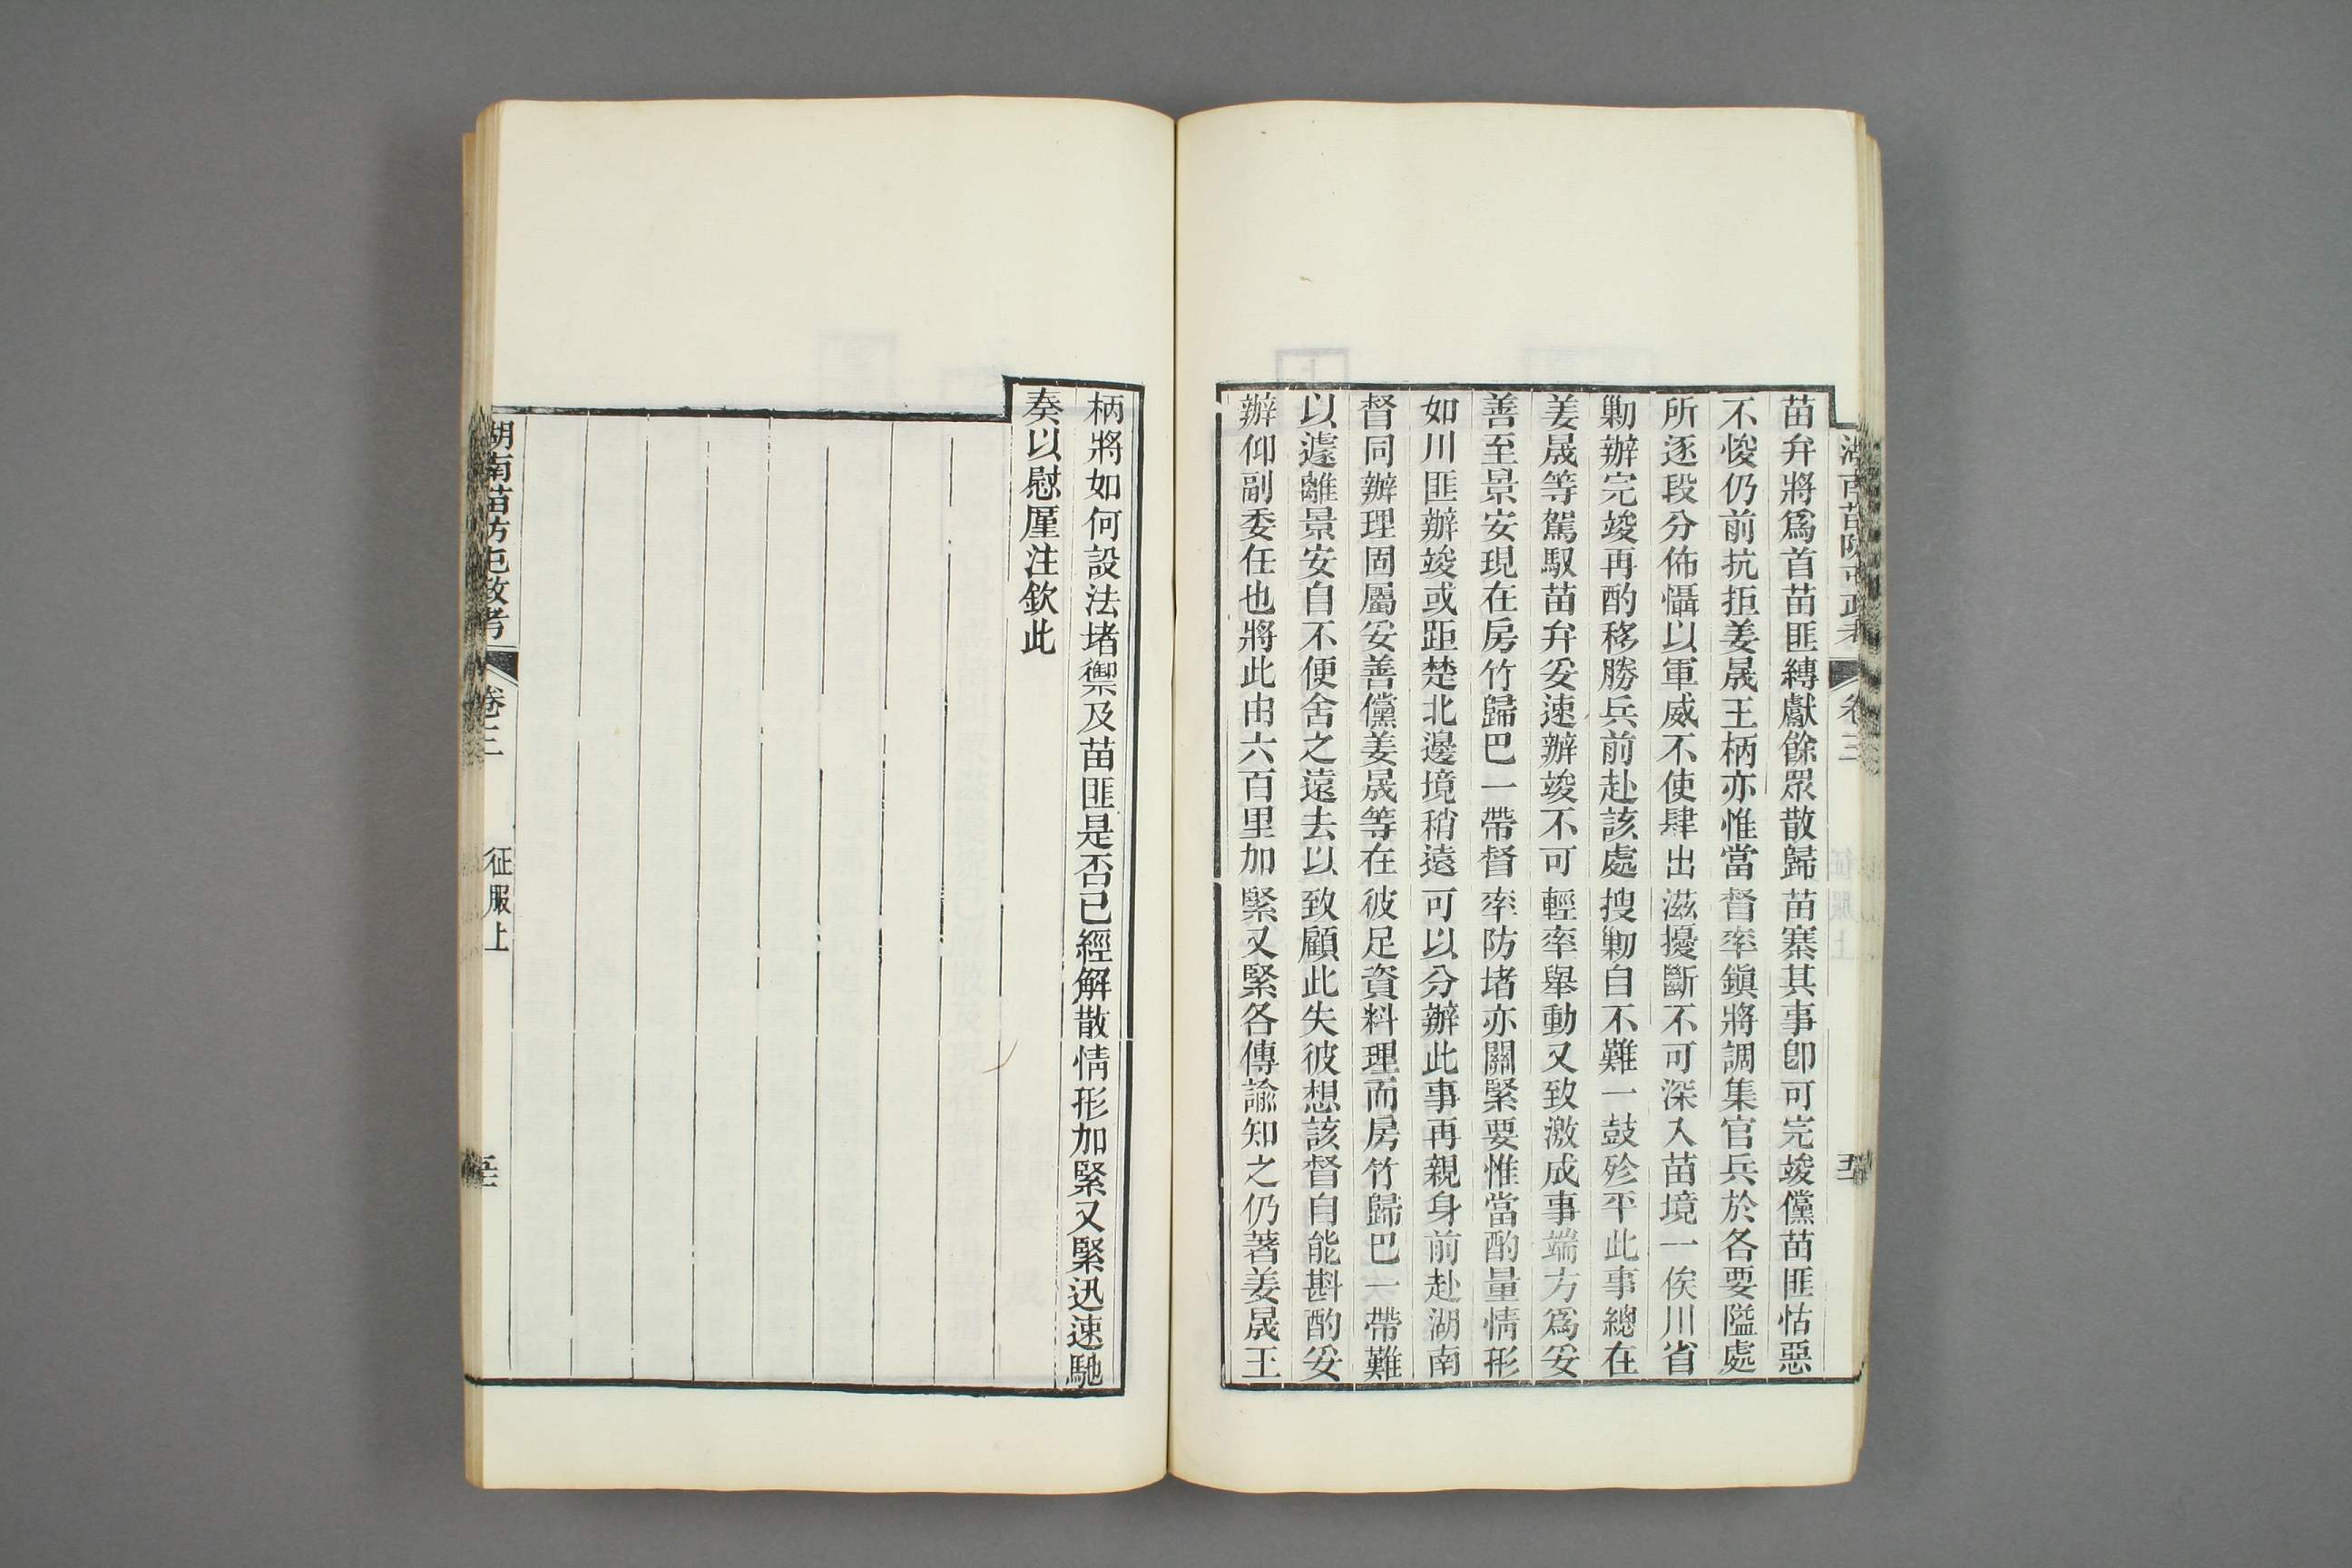 苗弁將爲首苗匪縛獻餘眾散歸苗寨其事卽可完竣儻苗匪怙惡
不悛仍前抗拒姜晟王柄亦惟當督率鎭將調集官兵於各要隘處
所逐段分佈懾以軍威不使肆出滋擾斷不可深入苗境一俟川省
勦辦完竣再酌移勝兵前赴該處搜勦自不難一鼓殄平此事總在
姜晟等駕馭苗弁妥速辦竣不可輕率舉動又致激成事端方爲妥
善至景安現在房竹歸巴一帶督率防堵亦關緊要惟當酌量情形
如川匪辦竣或距楚北邊境稍遠可以分辦此事再親身前赴湖南
督同辦理固屬妥善儻姜晟等在彼足資料理而房竹歸巴一帶難
以遽離景安自不便舍之遠去以致顧此失彼想該督自能斟酌妥
辦仰副委任也將此由六百里加緊又緊各傳諭知之仍著姜晟王
柄將如何設法堵禦及苗匪是否已經解散情形加緊又緊迅速馳
奏以慰厪注欽此
湖南苗防屯政考 卷三 征服上